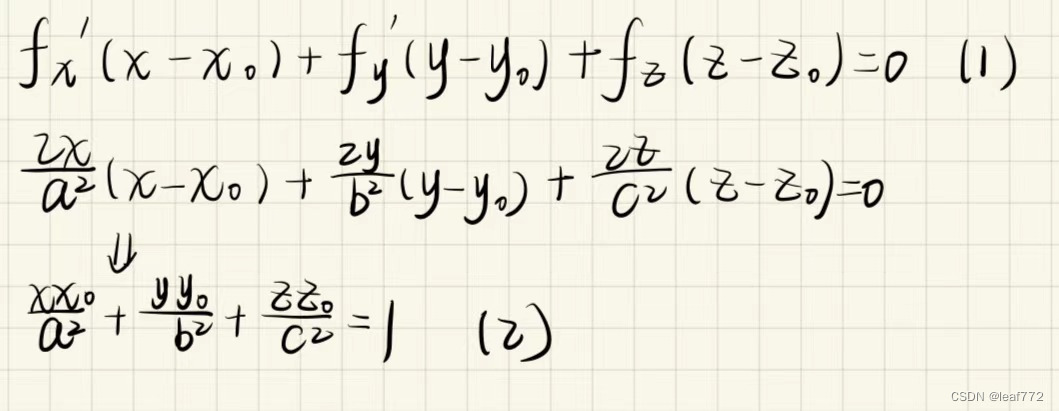 fx′(x-x₀)+fy′(y-y₀)+fz(z-z₀)=0 (1)
2x/a²(x-x₀)+2y/b²(y-y₀)+2z/c²(z-z₀)=0
⇓
xx₀/a²+yy₀/b²+zz₀/c²=1 (2)
CSDN @leaf772